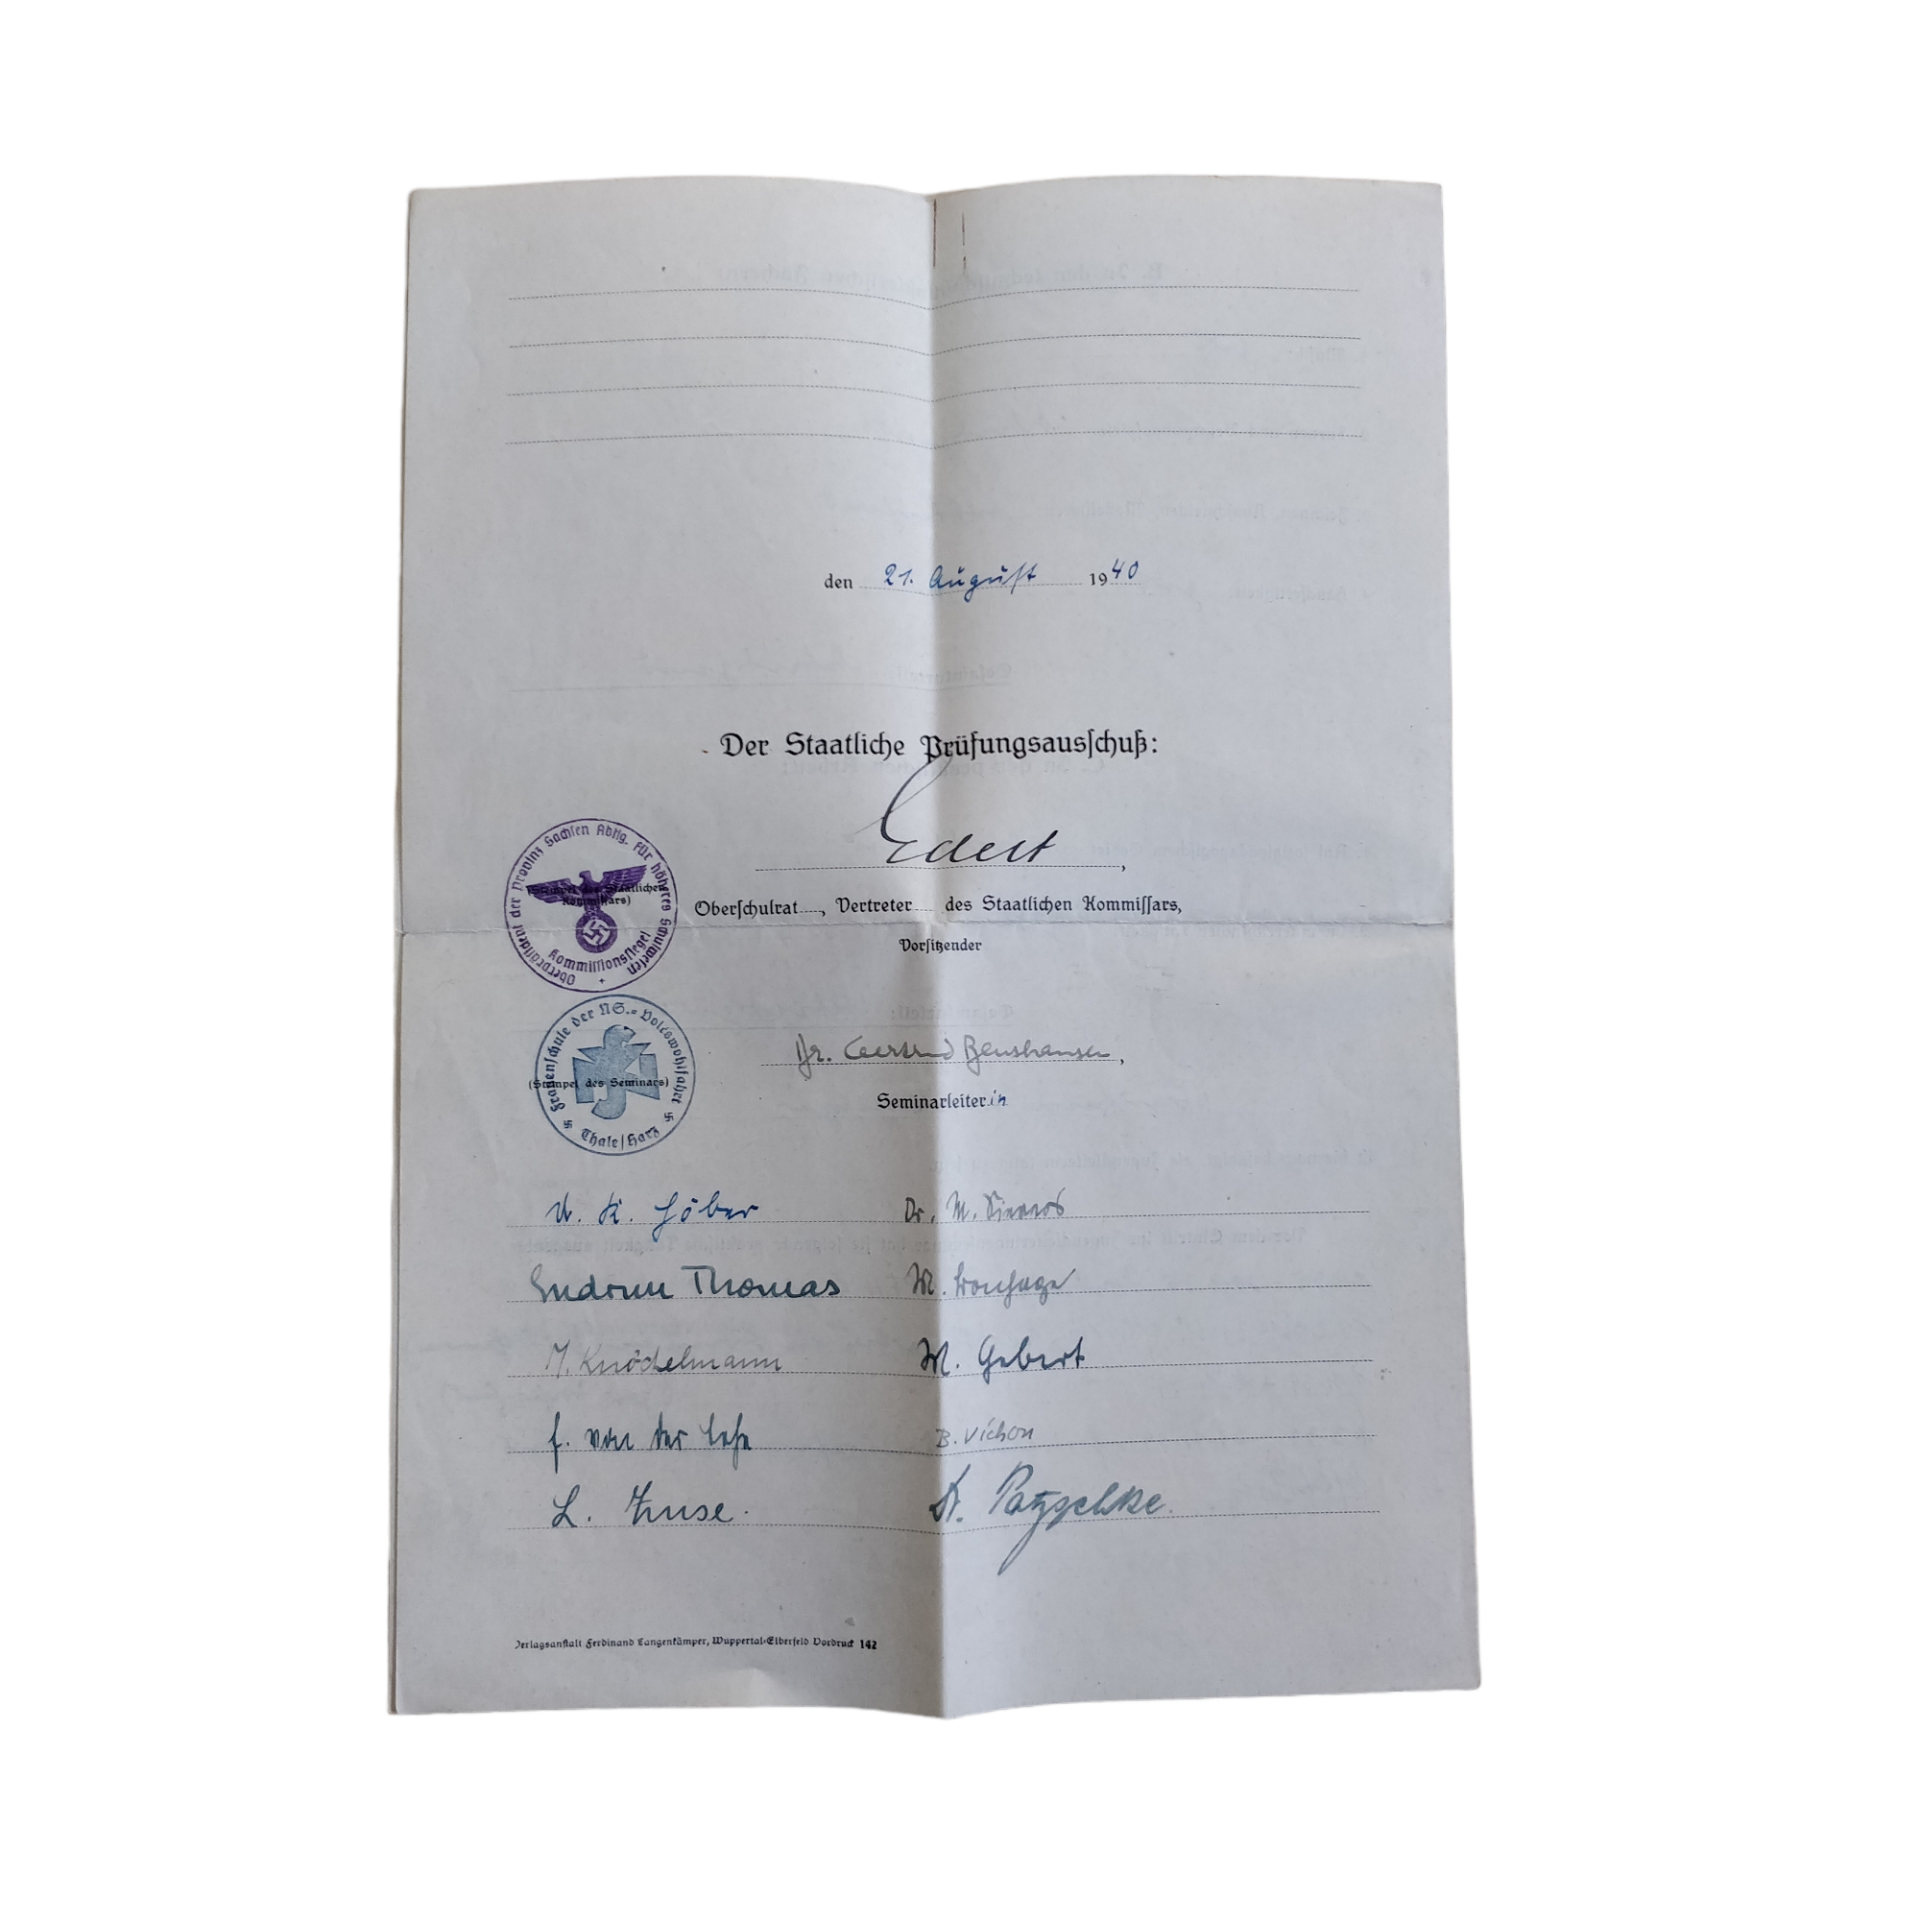 den 21. August 1940
Der Staatliche Prüfungsausschuß:
Edert
Oberpräsident der Provinz Sachsen Abtlg. für höheres Schulwesen
Kommissionssiegel
(Stempel des Staatlichen
Kommissars)
Oberschulrat, Vertreter des Staatlichen Kommissars,
Vorsitzender
Frauenschule der NS.-Volkswohlfahrt
Thale/Harz
(Stempel des Seminars)
Dr. Gertrud
Seminarleiterin
Dr. M.
Gudrun Thomas M.
M. Knöchelmann M. Gebert
f. von der B. Vichon
L. Zuse. Dr.
Verlagsanstalt Ferdinand Langenkämper, Wuppertal-Elberfeld Vordruck 142